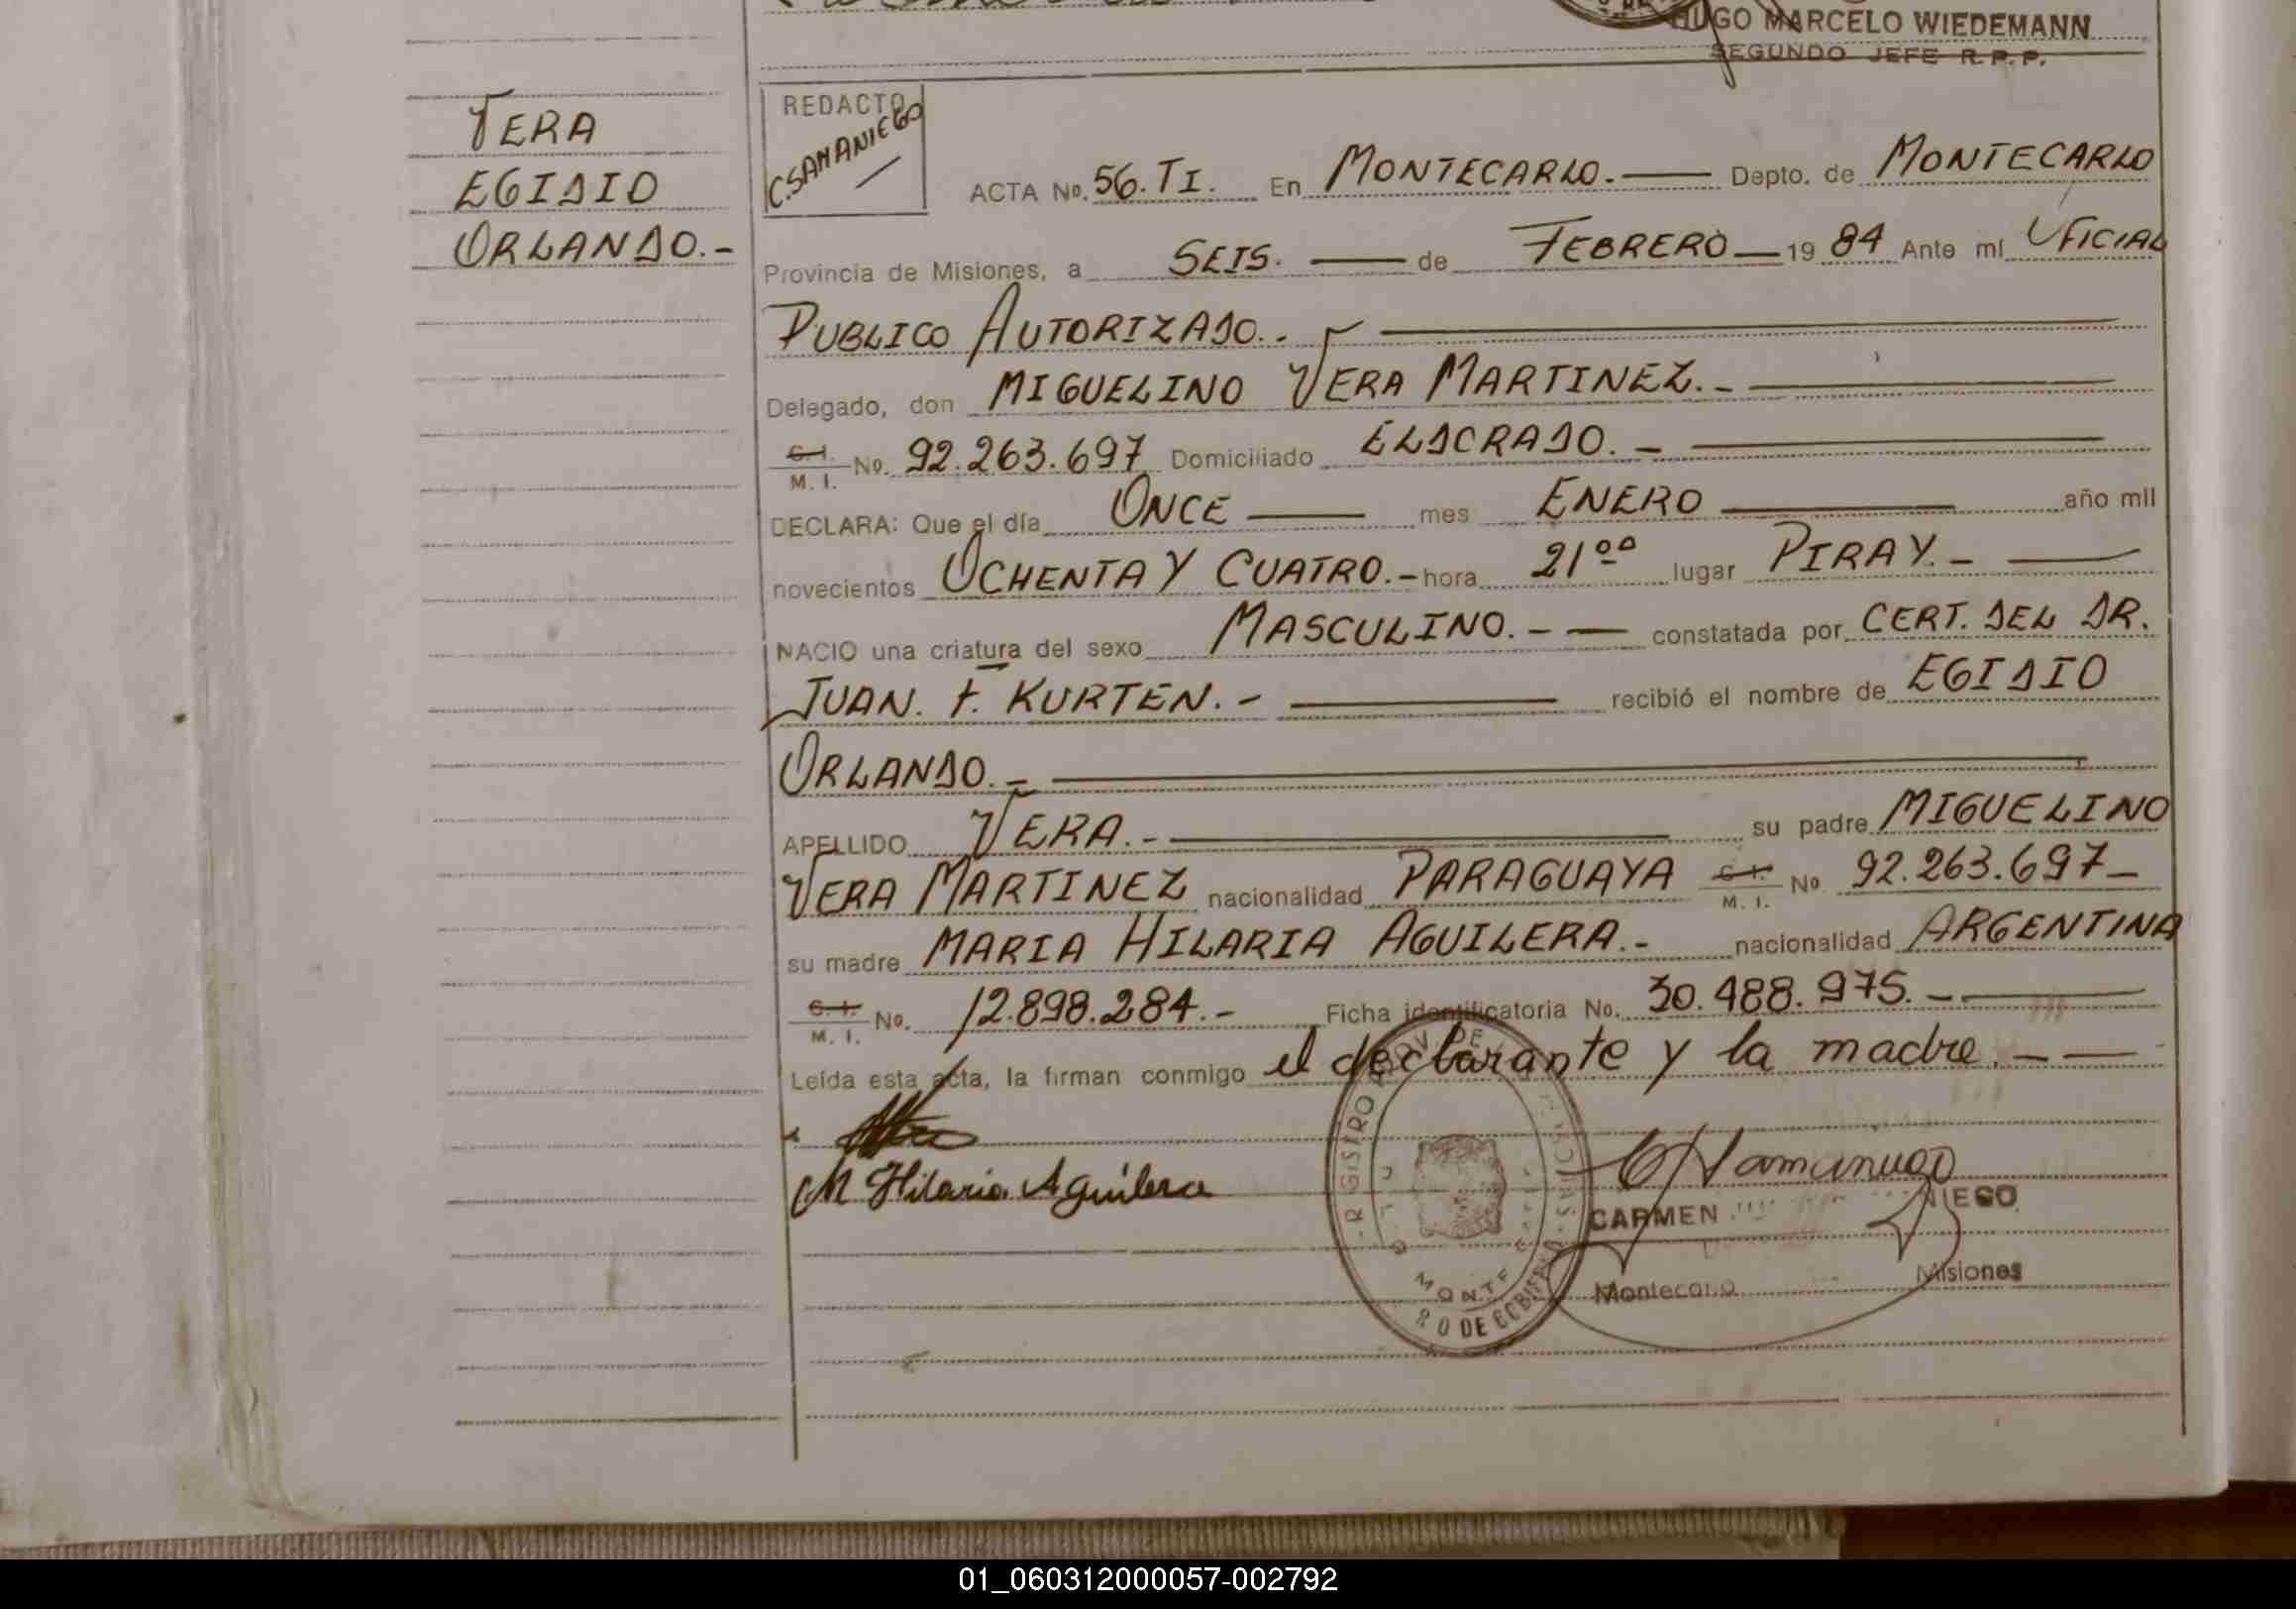 HUGO MARCELO WIEDEMANN
SEGUNDO JEFE R.P.P.
VERA
EGIDIO
ORLANDO.-
REDACTO
C.SAMANIEGO
ACTA No. 56. TI. En MONTECARLO.- Depto. de MONTECARLO
Provincia de Misiones, a SEIS. de FEBRERO 19 84 Ante mí OFICIAL
PUBLICO AUTORIZADO.-
Delegado, don MIGUELINO VERA MARTINEZ.-
C. I.
M. I. No. 92.263.697 Domiciliado ELDORADO.-
DECLARA: Que el día ONCE mes ENERO año mil
novecientos OCHENTA Y CUATRO.- hora 21ºº lugar PIRAY.-
NACIO una criatura del sexo MASCULINO.- constatada por CERT. DEL DR.
JUAN. F. KURTEN.- recibió el nombre de EGIDIO
ORLANDO.-
APELLIDO VERA.- su padre MIGUELINO
VERA MARTINEZ nacionalidad PARAGUAYA C. I. M. I. No 92.263.697-
su madre MARIA HILARIA AGUILERA.- nacionalidad ARGENTINA
C. I.
M. I. No. 12.898.284.- Ficha identificatoria No. 30.488.975.-
Leída esta acta, la firman conmigo el declarante y la madre.-
M Hilaria Aguilera
CARMEN NIEGO
Montecarlo Misiones
01_060312000057-002792